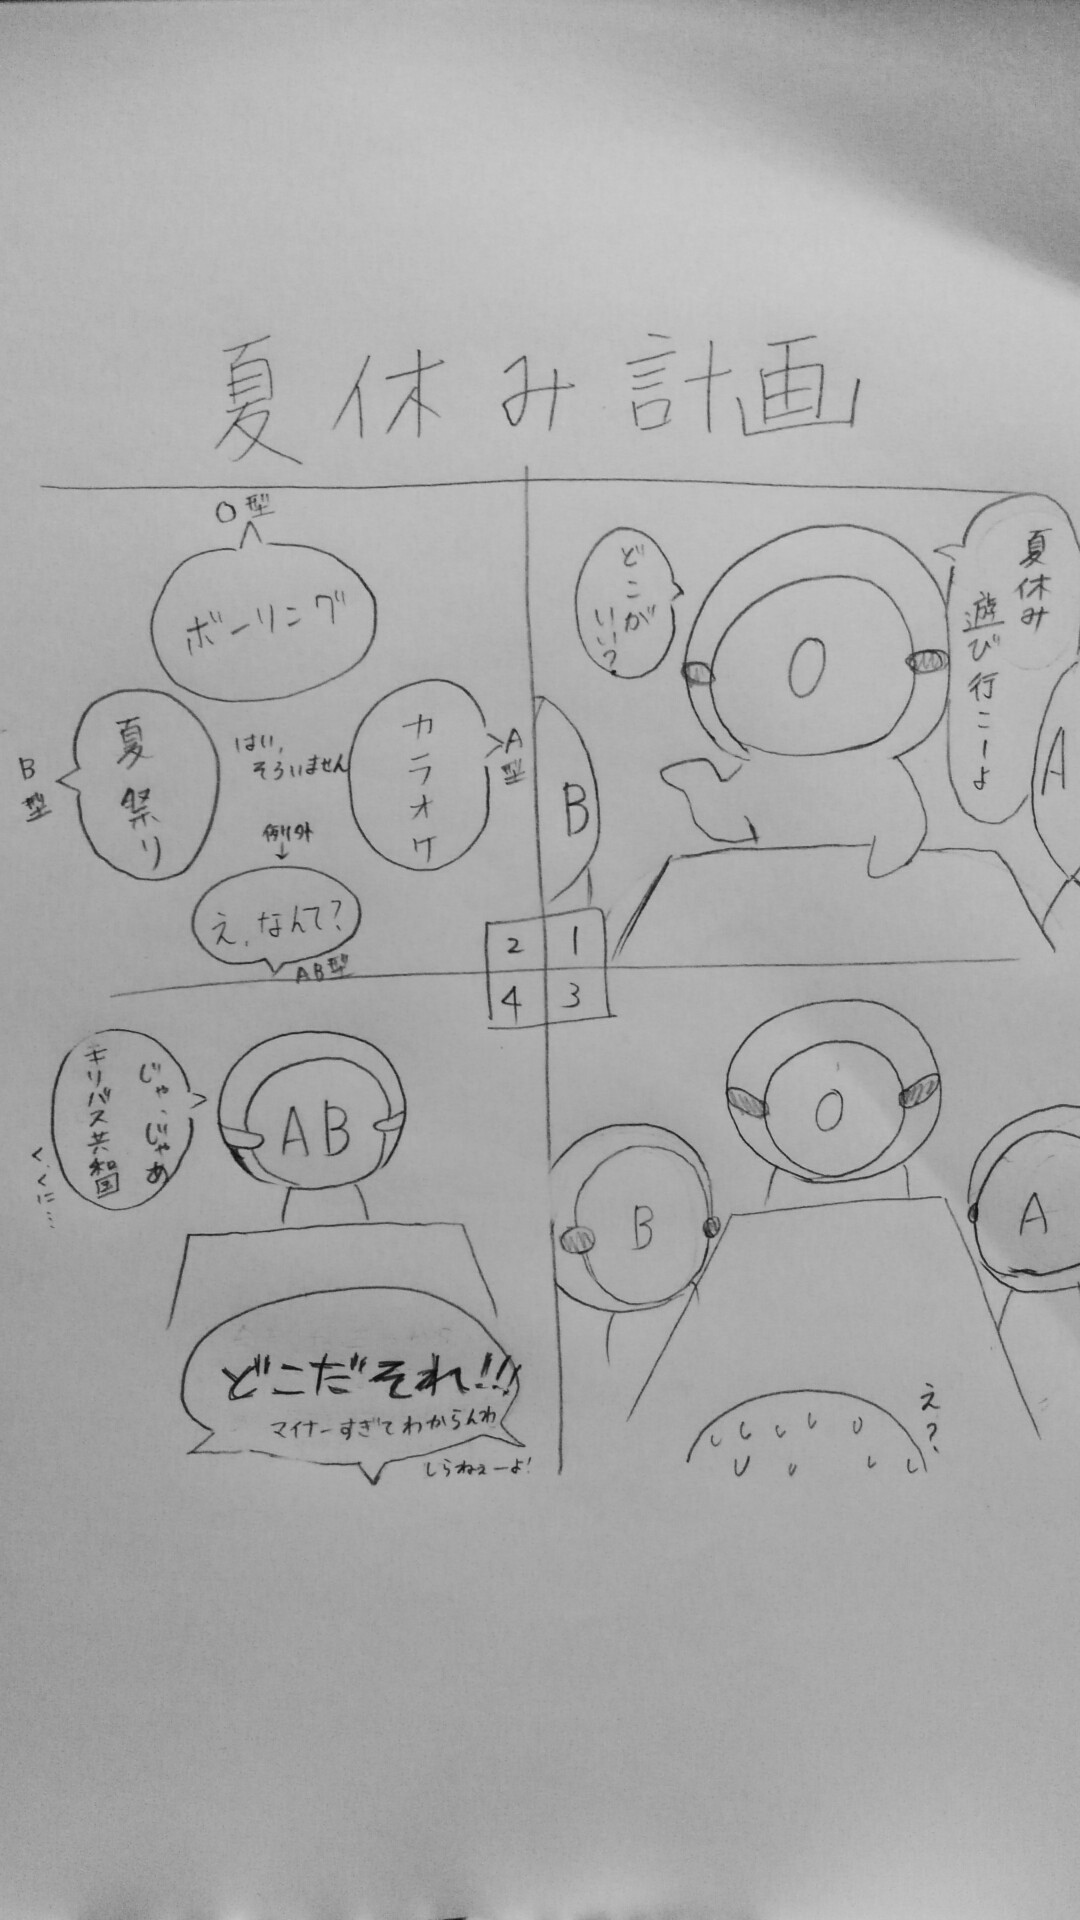 夏休み計画
夏休み
遊び行こーよ
どこが
いい?
O
A
B
O型
ボーリング
A型
カラオケ
はい、
そろいません
B型
夏祭り
例外
↓
え、なんて?
AB型
2 1
4 3
O
B
A
え?
AB
じゃ、じゃあ
キリバス共和国
く、くに…
どこだそれ!!
マイナーすぎてわからんわ
しらねぇーよ!